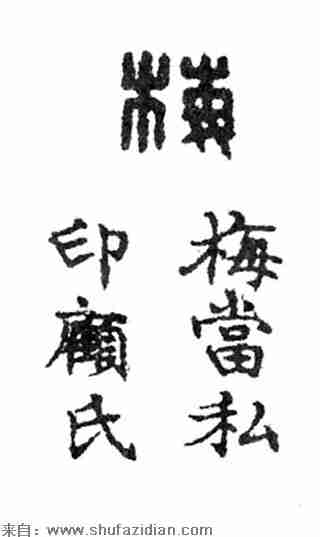 梅
梅當私
印顧氏
来自：www.shufazidian.com